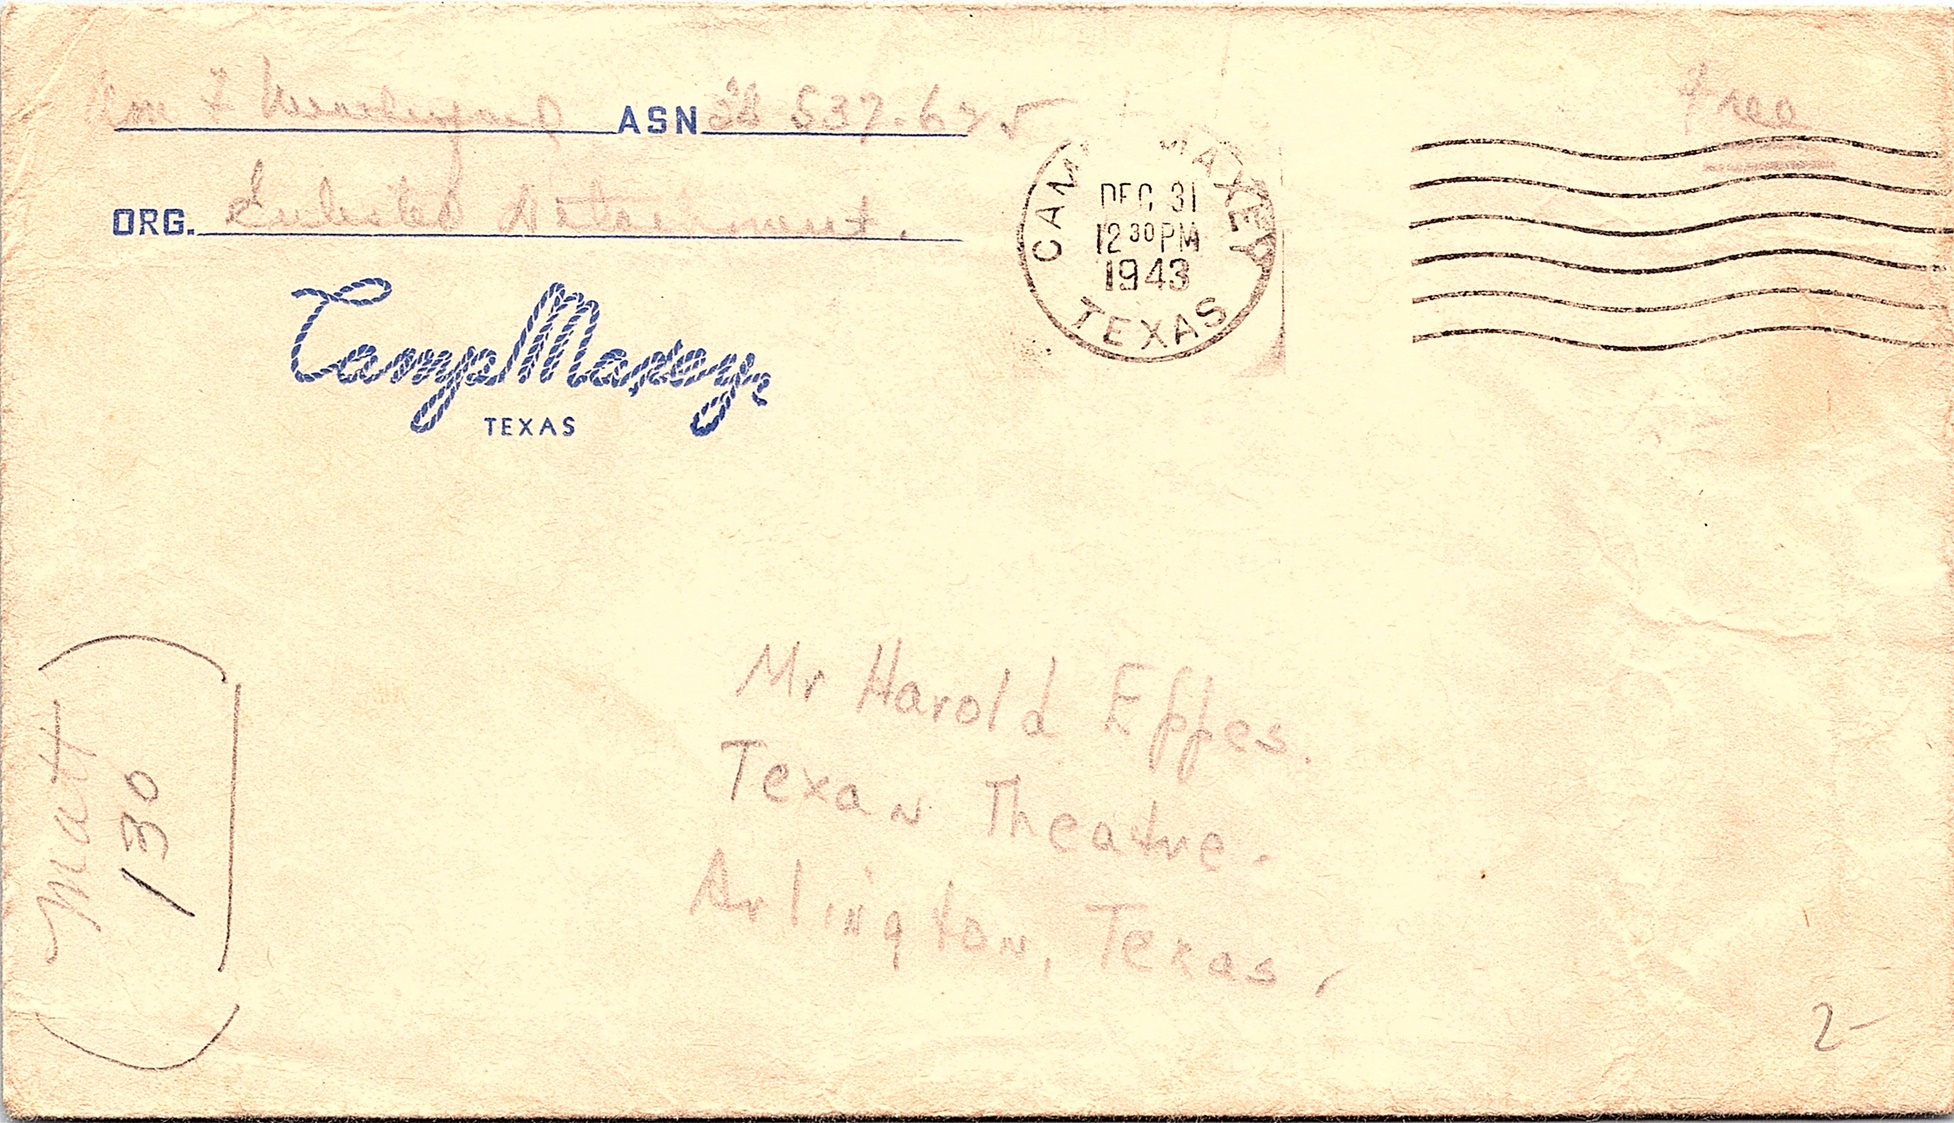 Wm F ASN 38 537.625
Free
ORG. Enlisted Detachment.
CAMP MAXEY
DEC 31
12 30 PM
1943
TEXAS
Camp Maxey,
TEXAS
Mr Harold Effes.
Texan Theatre.
Arlington, Texas.
Matt
130
2-